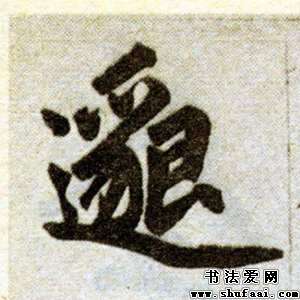 邈
书法爱网
www.shufaai.com